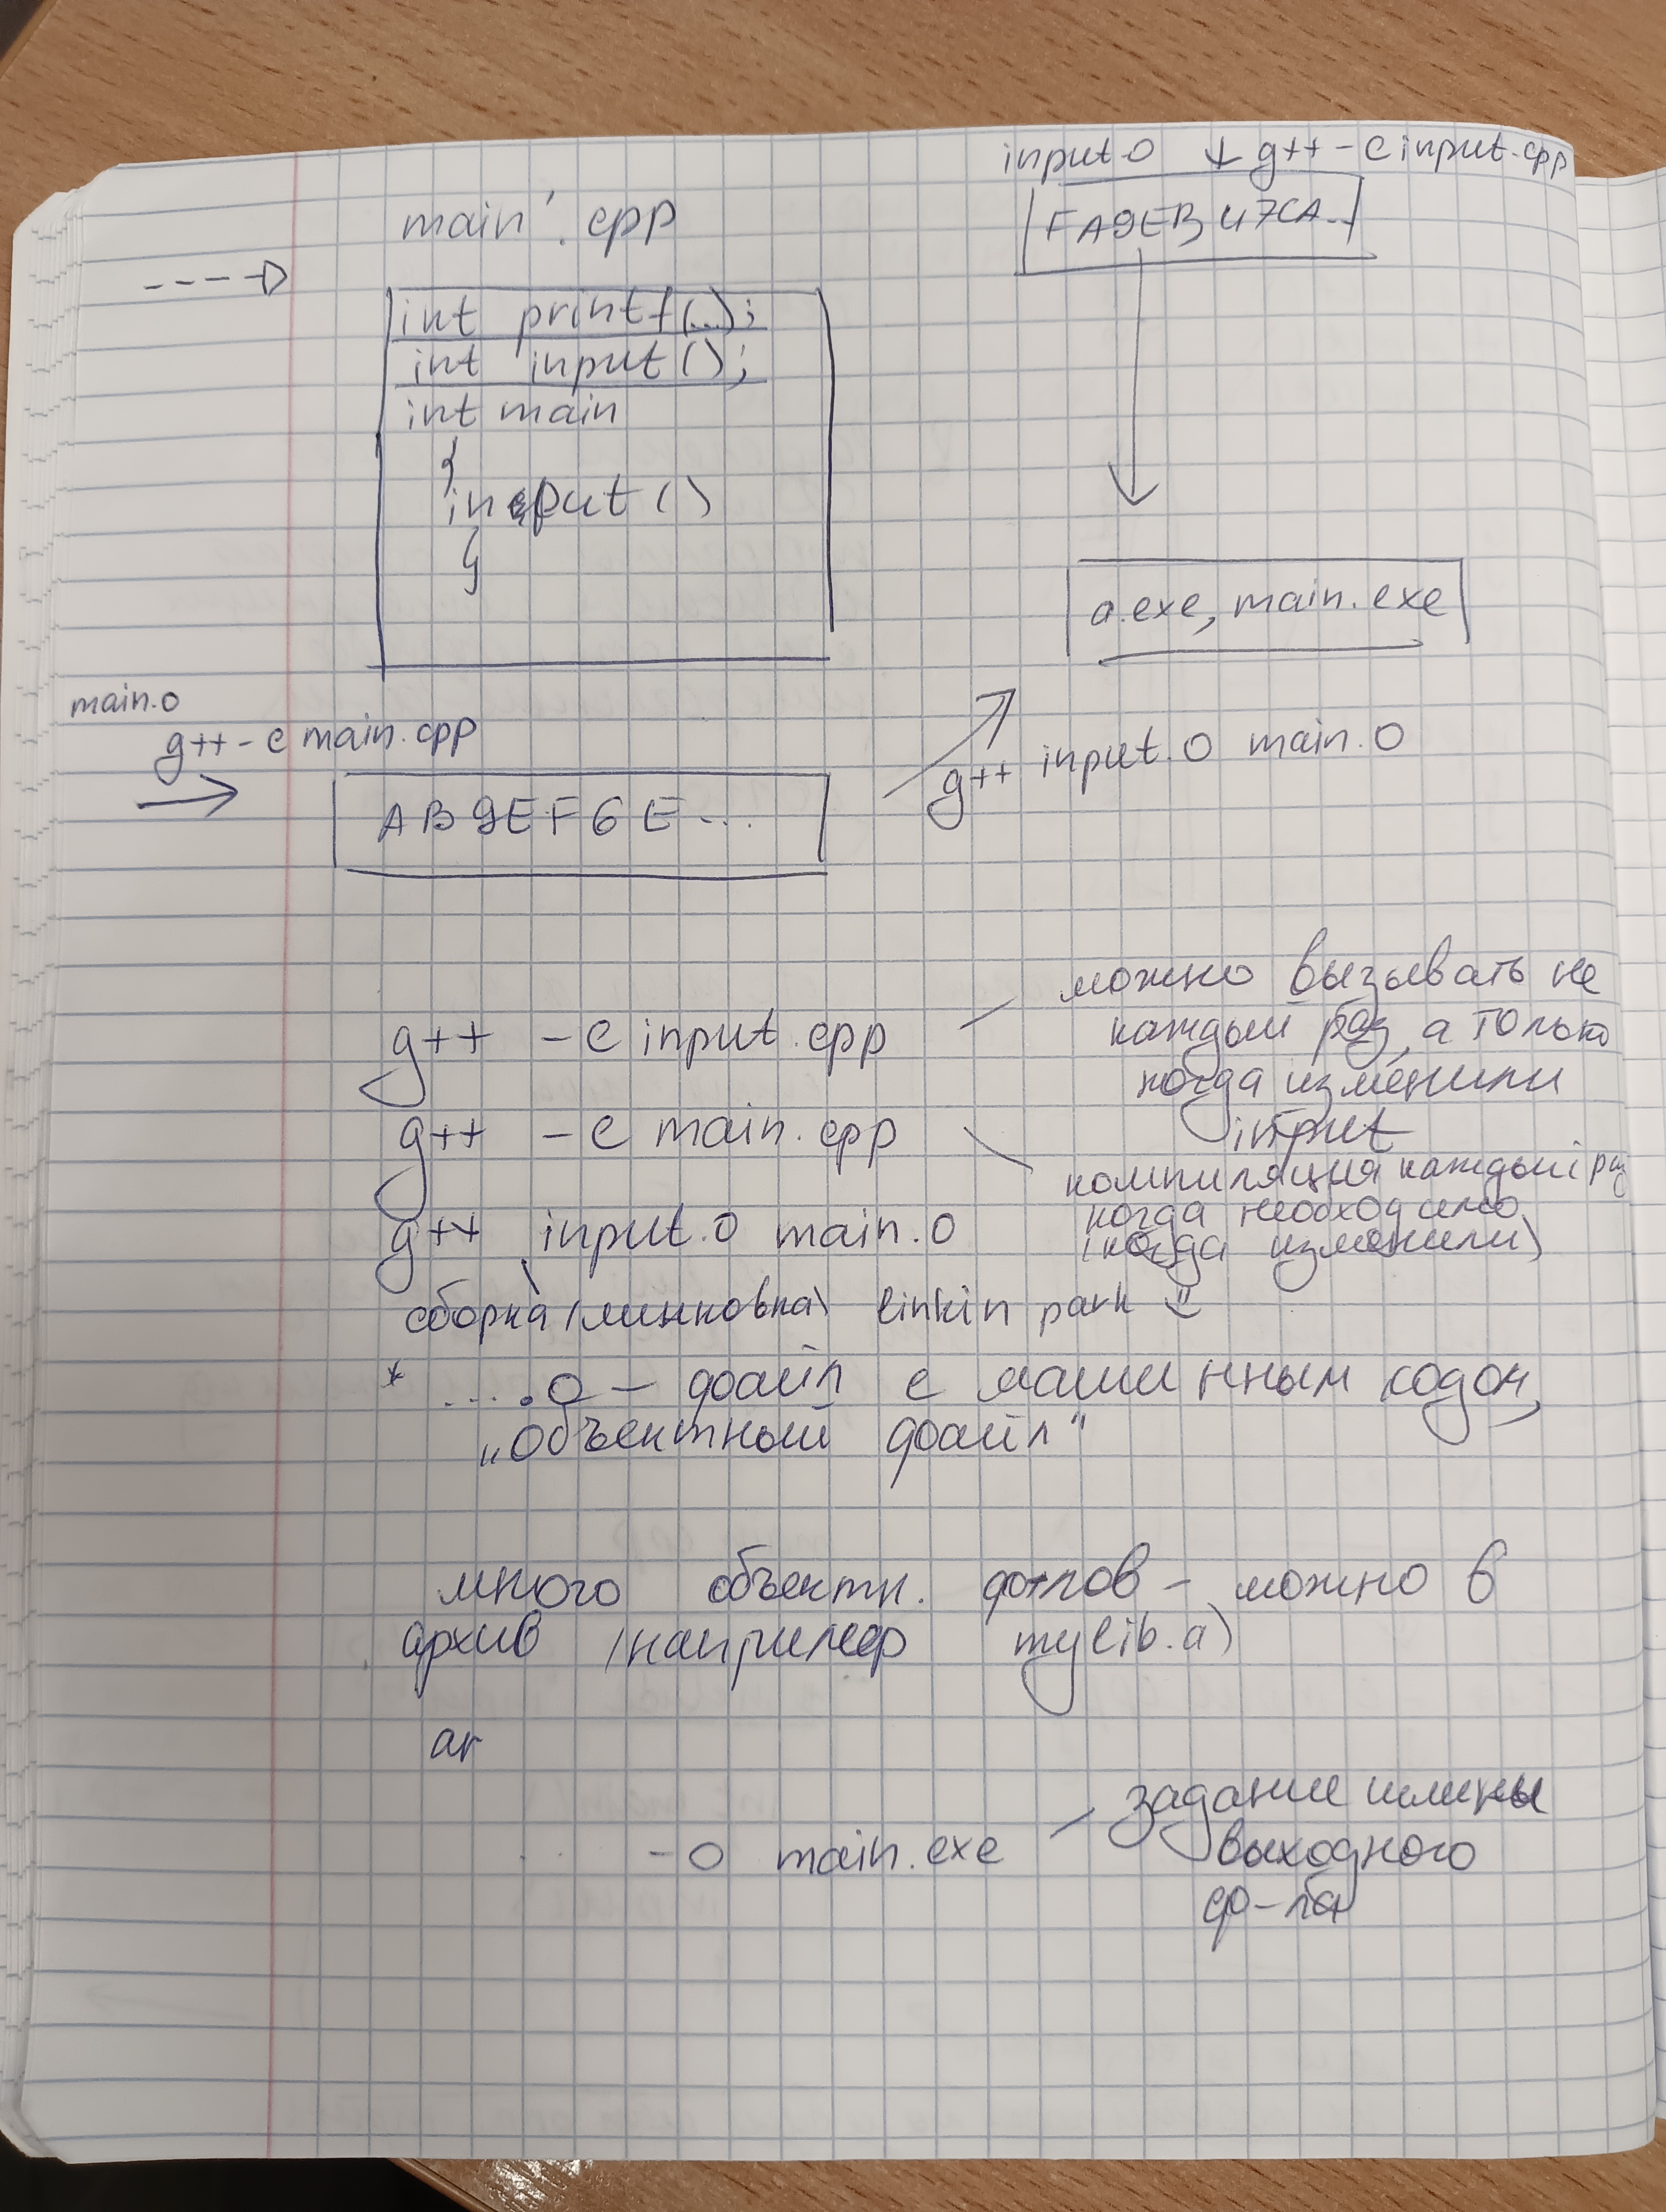 input.o ↓ g++ -c input.cpp
FA9EB47CA...
main.cpp
int printf(...);
int input();
int main
{
input()
}
a.exe, main.exe
main.o
g++ -c main.cpp
AB9EF6E...
g++ input.o main.o
g++ -c input.cpp
можно вызывать не
каждый раз, а только
когда изменили
input
g++ -c main.cpp
компиляция каждый раз
когда необходимо
(когда изменили)
g++ input.o main.o
сборка (линковка) linkin park
* ....o – файл с машинным кодом,
„объектный файл"
много объектн. файлов – можно в
архив (например mylib.a)
ar
-o main.exe
задание имены
выходного
ф-ла